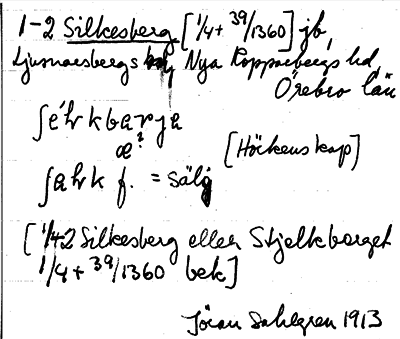 1-2 Silkesberg [1/4 + 39/1360] jb,
Ljusnarsbergs Nya Kopparbergs hd,
Örebro län
ʃéh́rkbarja
æ?
[Höckens kap]
ʃahrk f. = sälg
[1/4 2 Silkesberg eller Stjelkberget
1/4 + 39/1360 bek]
Jöran Sahlgren 1913